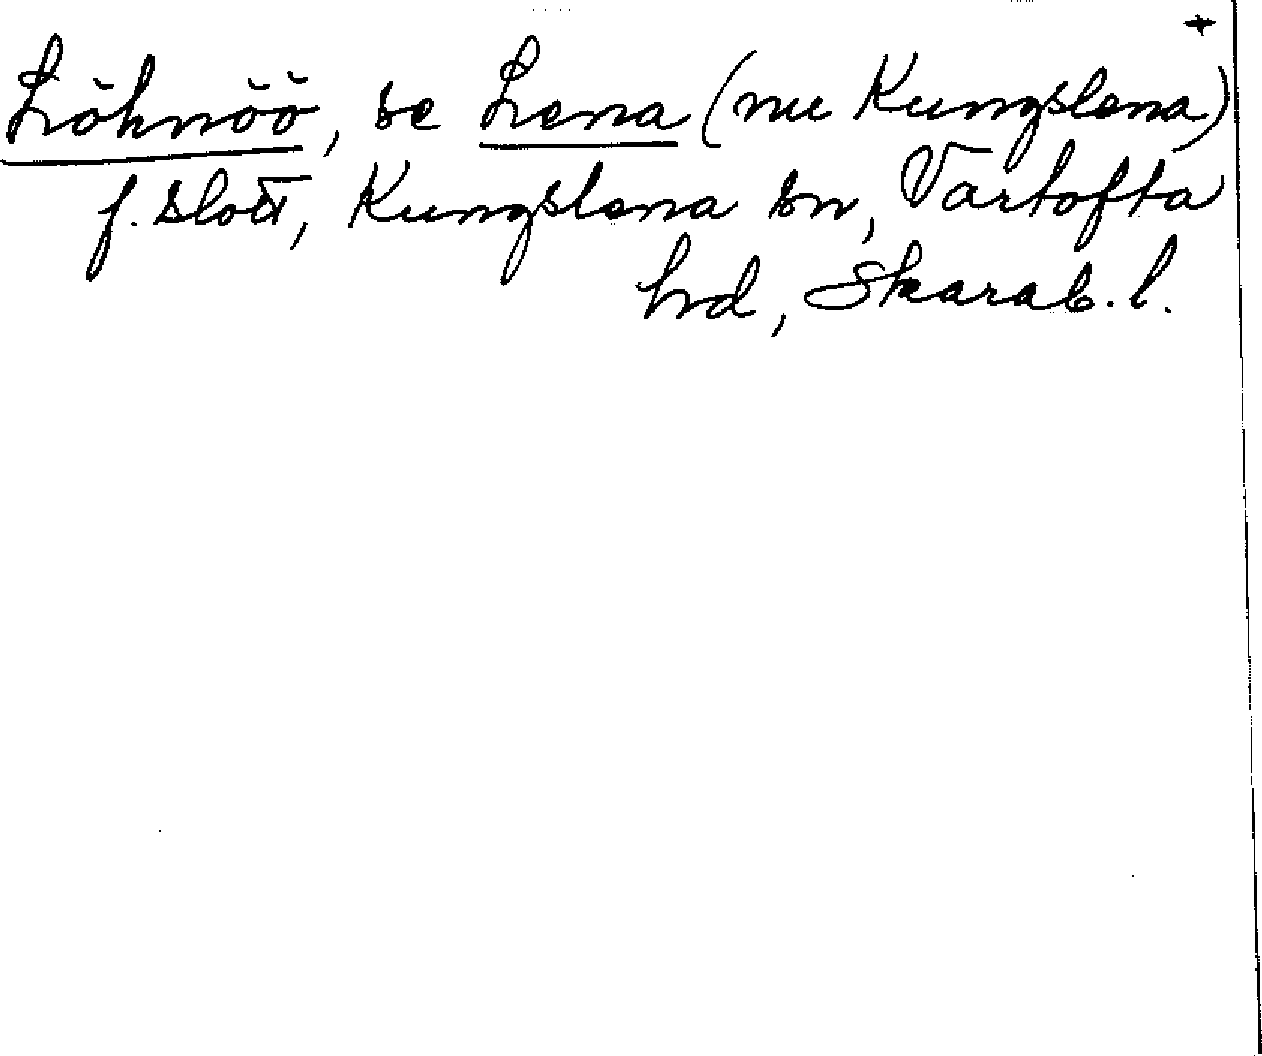 +
Löhnöö, se Lena (nu Kungslena)
f. slott, Kungslena sn, Vartofta
hd, Skarab. l.